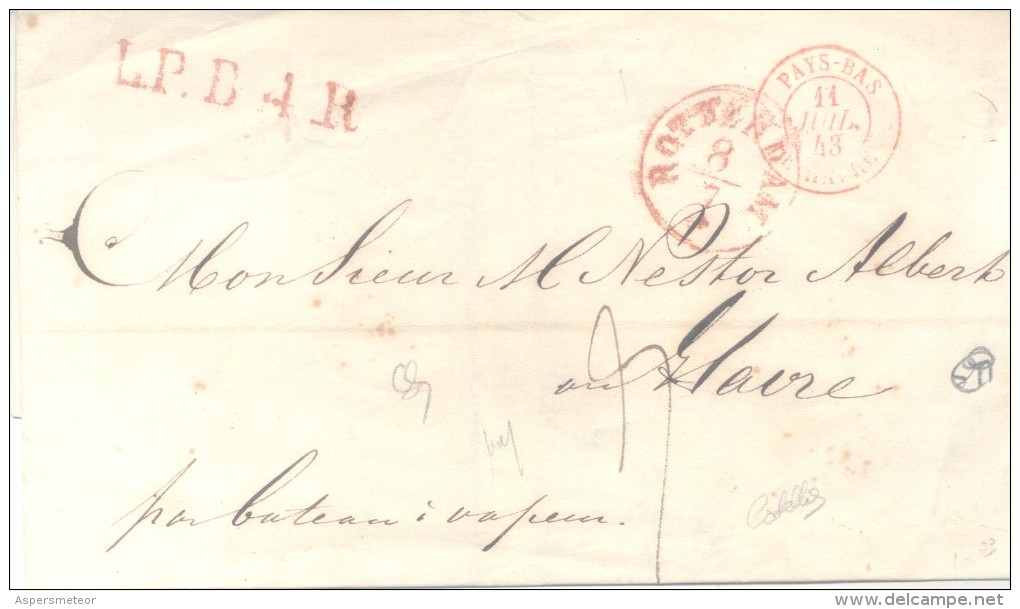 L.P.B. 4. R
PAYS-BAS
11
JUIL
43
HAVRE
ROTTERDAM
8
7
Monsieur M Nestor Albert
au Havre
par bateau à vapeur.
Aspersmeteor
www.delcampe.net